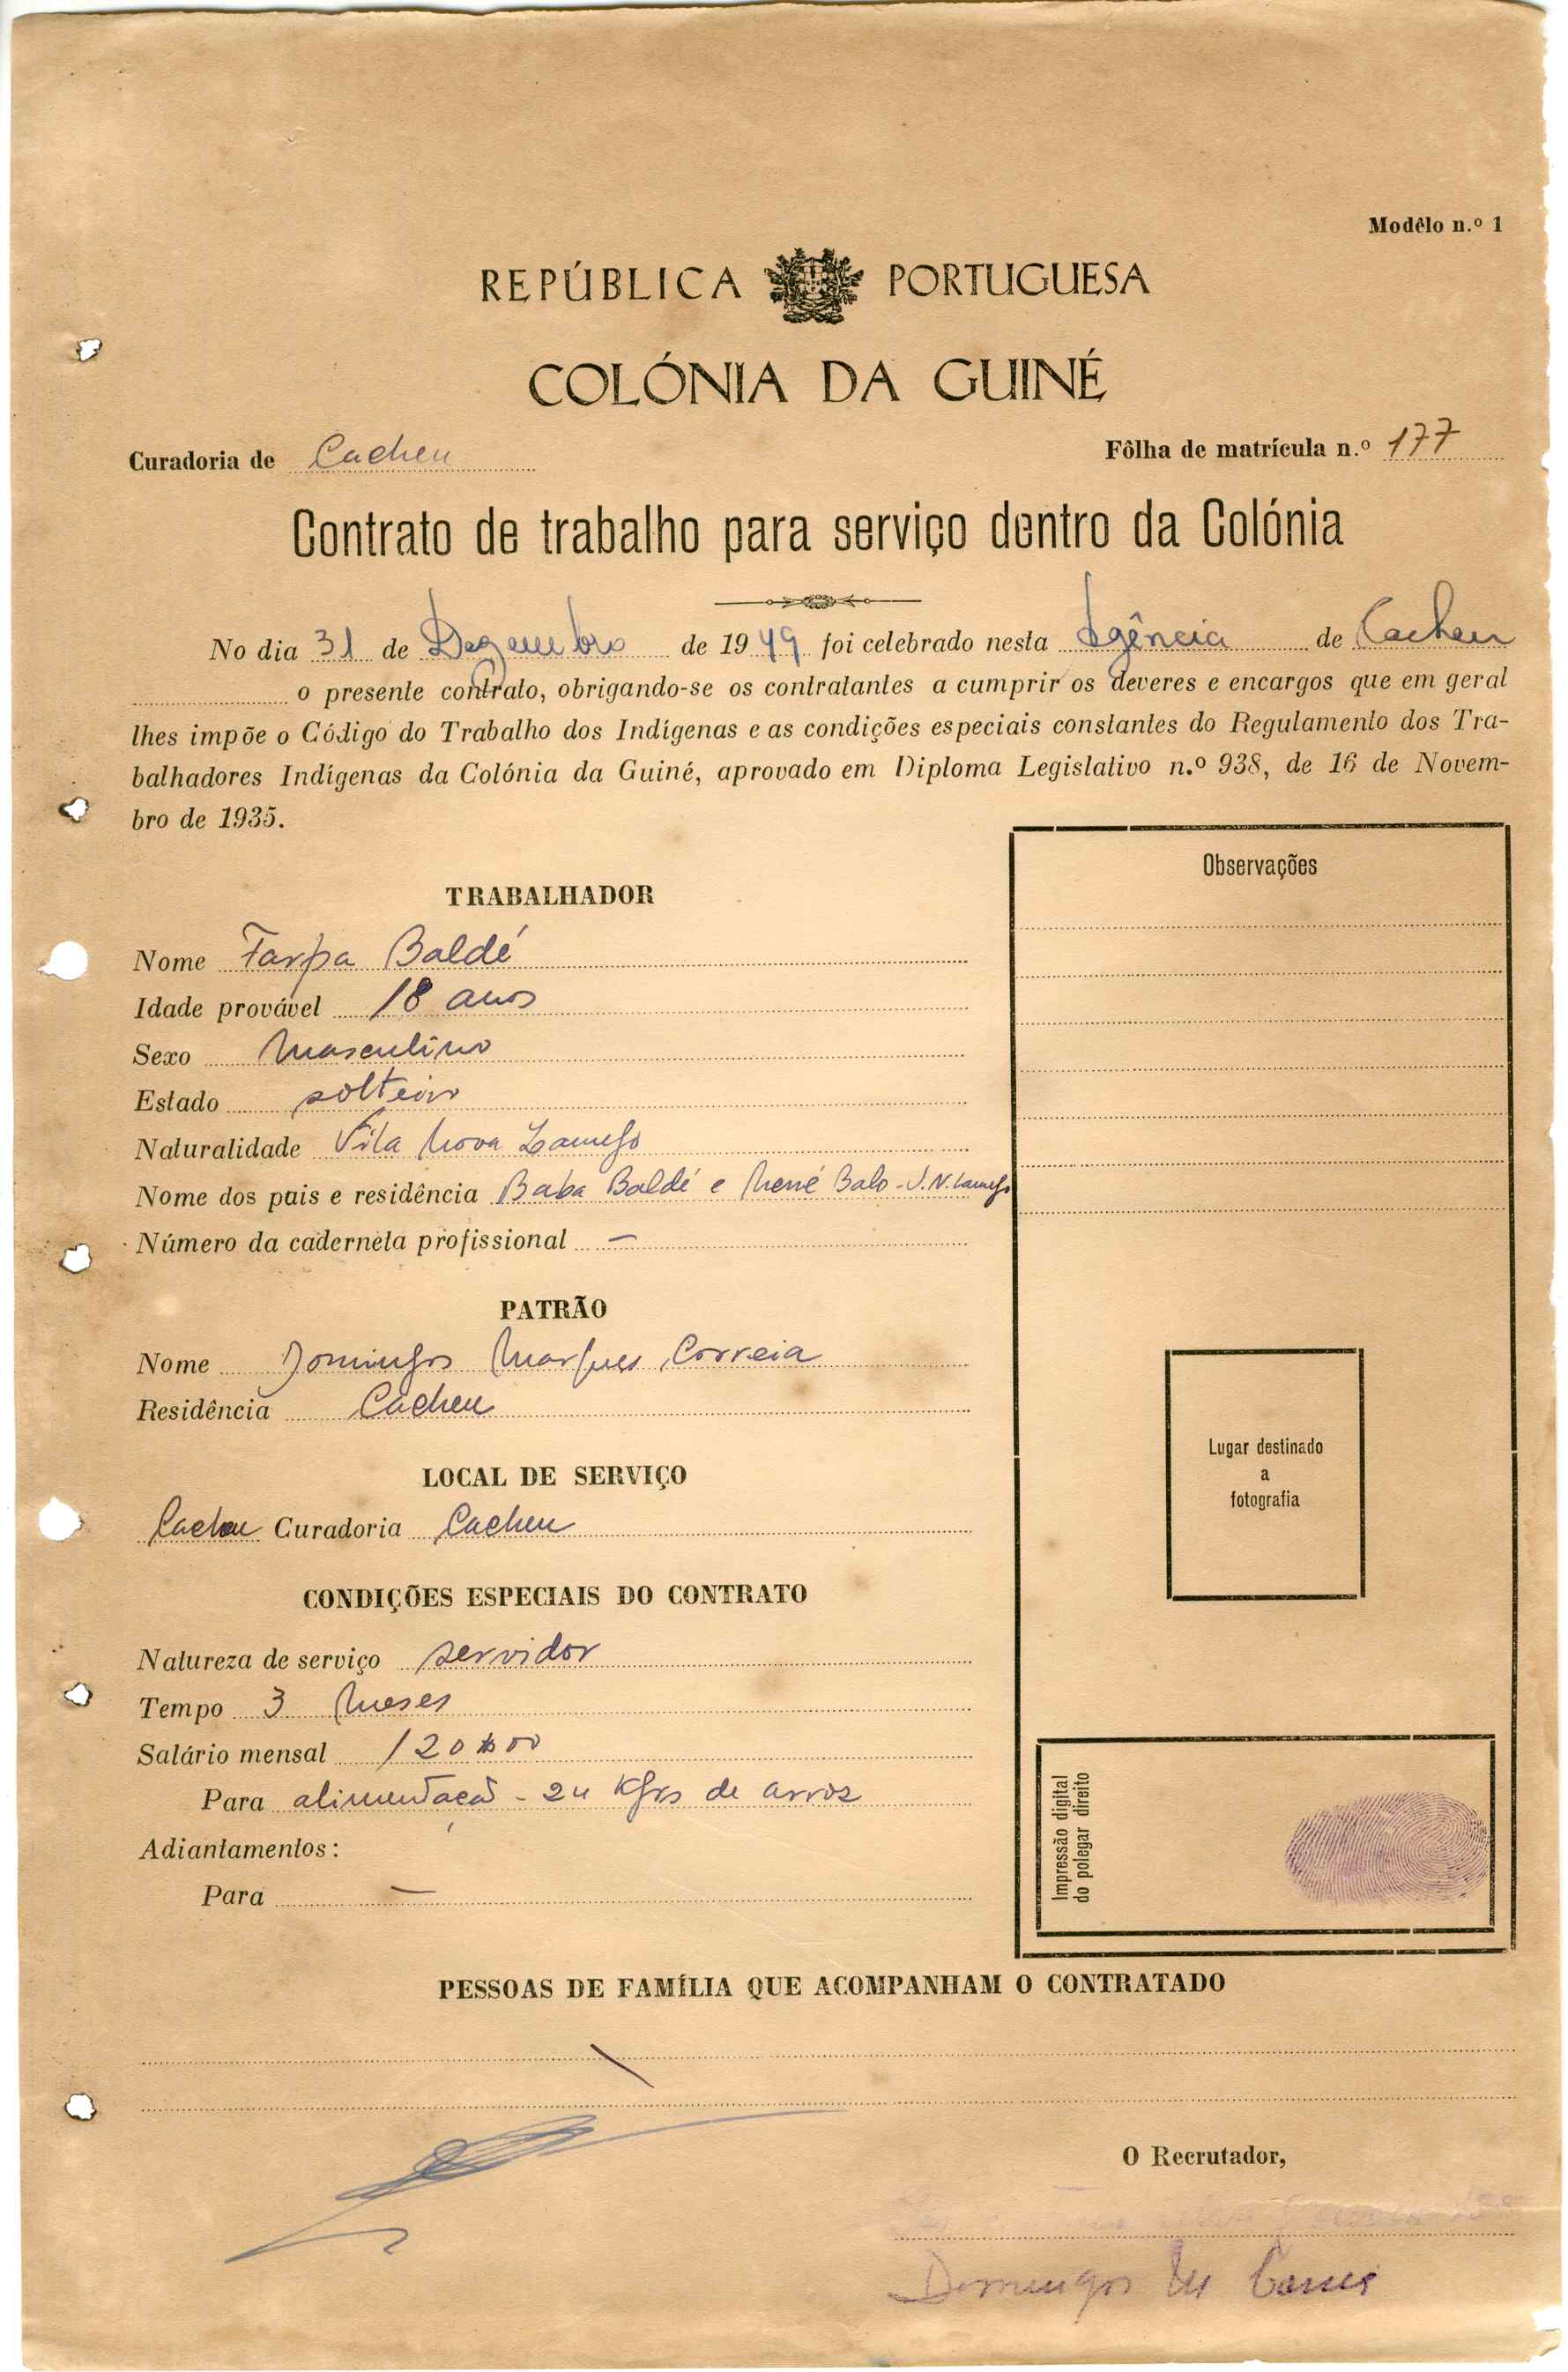 Modêlo n.º 1
REPÚBLICA PORTUGUESA
COLÓNIA DA GUINÉ
Curadoria de Cacheu Fôlha de matrícula n.º 177
Contrato de trabalho para serviço dentro da Colónia
No dia 31 de Dezembro de 1949 foi celebrado nesta Agência de Cacheu
o presente contrato, obrigando-se os contratantes a cumprir os deveres e encargos que em geral
lhes impõe o Código do Trabalho dos Indígenas e as condições especiais constantes do Regulamento dos Tra-
balhadores Indígenas da Colónia da Guiné, aprovado em Diploma Legislativo n.º 938, de 16 de Novem-
bro de 1935.
TRABALHADOR
Nome Farpa Baldé
Idade provável 18 anos
Sexo Masculino
Estado solteiro
Naturalidade Vila Nova Lamego
Nome dos pais e residência Baba Baldé e Balo - V.N. Lamego
Número da caderneta profissional —
PATRÃO
Nome Domingos Marques Correia
Residência Cacheu
LOCAL DE SERVIÇO
Cacheu Curadoria Cacheu
CONDIÇÕES ESPECIAIS DO CONTRATO
Natureza de serviço servidor
Tempo 3 Meses
Salário mensal 120$00
Para alimentação - 24 Kgrs de arroz
Adiantamentos:
Para —
Observações
Lugar destinado
a
fotografia
Impressão digital
do polegar direito
PESSOAS DE FAMÍLIA QUE ACOMPANHAM O CONTRATADO
O Recrutador,
Domingos M